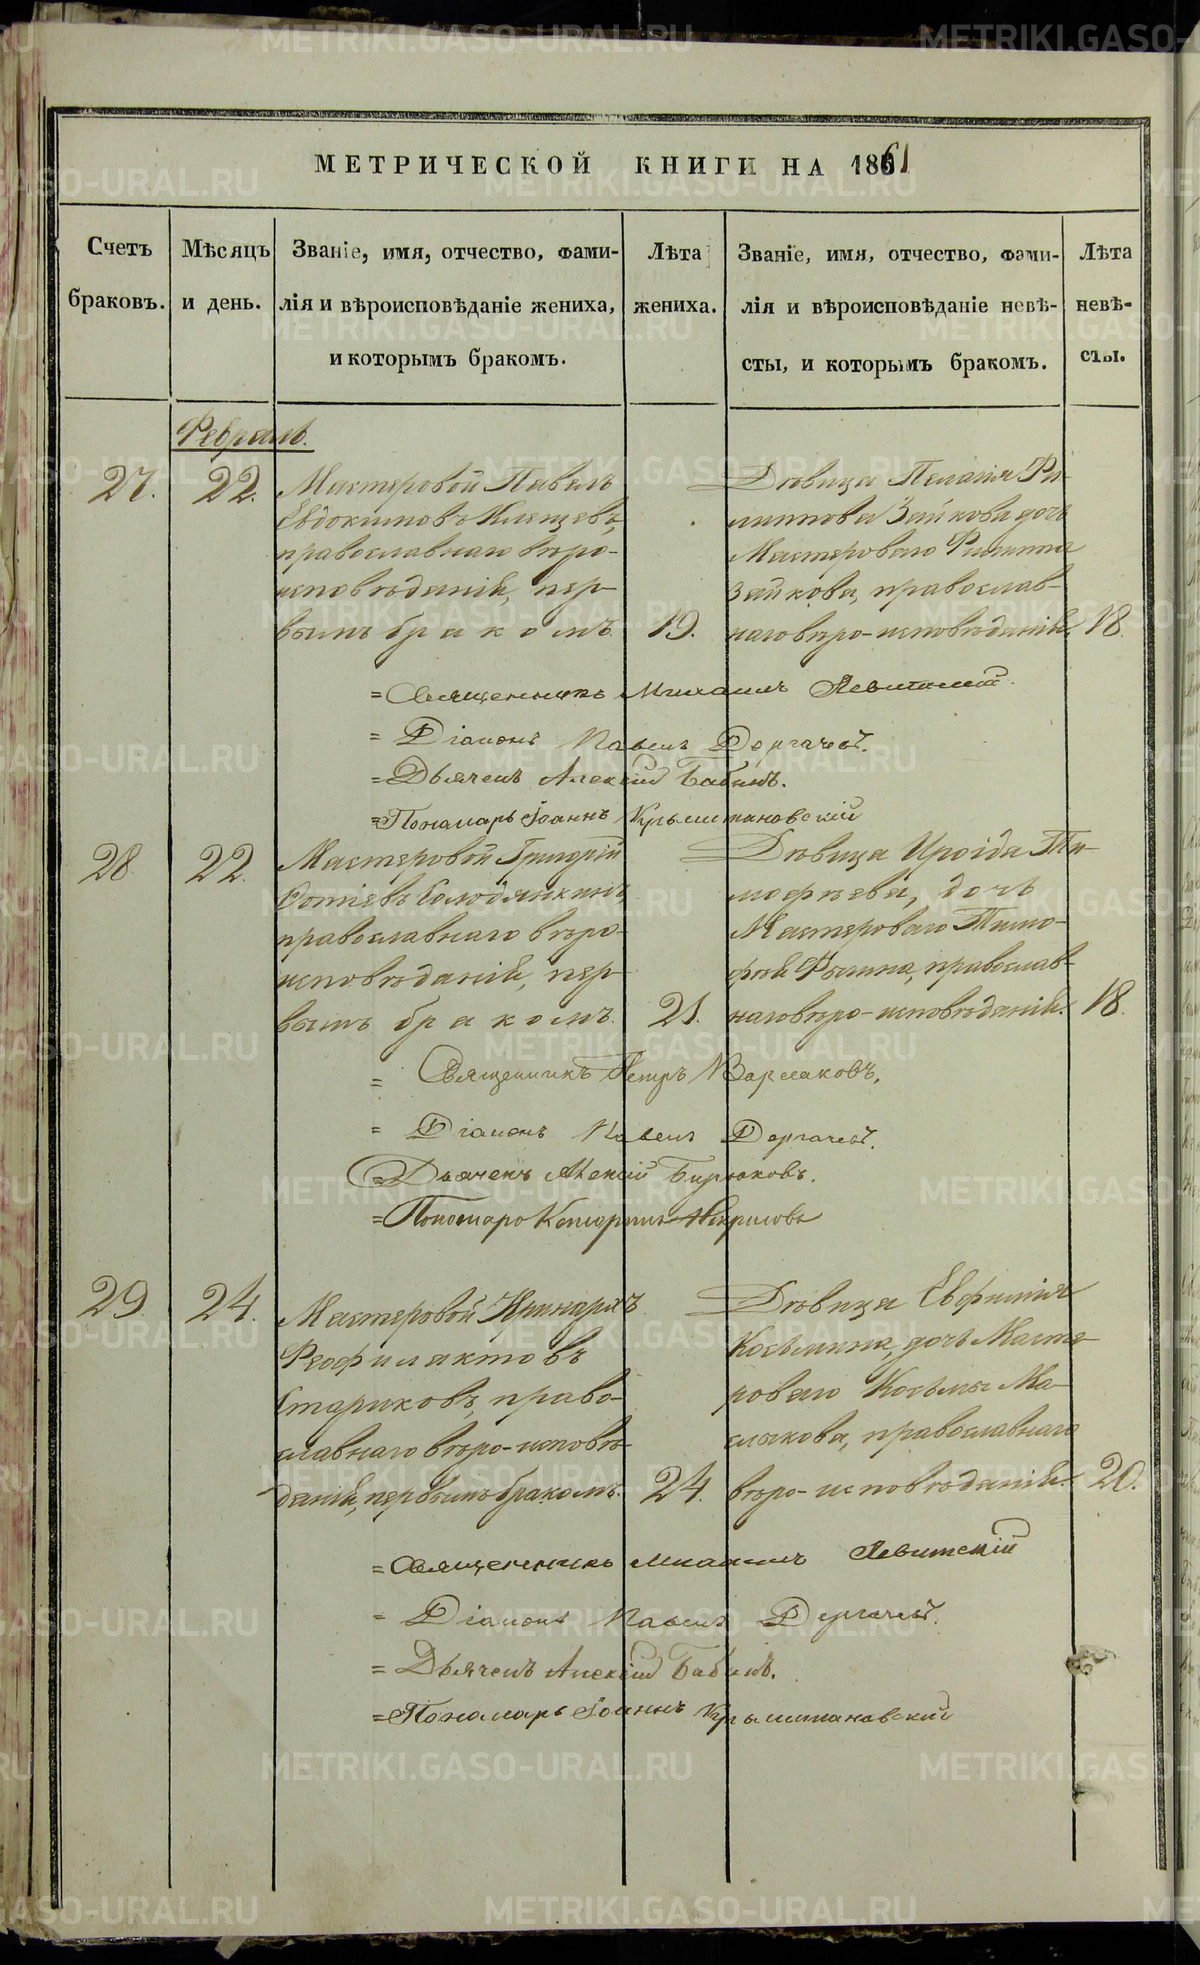 МЕТРИЧЕСКОЙ КНИГИ НА 1861
Счетъ браковъ.
Мѣсяцъ и день.
Званіе, имя, отчество, фами-
лія и вѣроисповѣданіе жениха,
и которымъ бракомъ.
Лѣта жениха.
Званіе, имя, отчество, фами-
лія и вѣроисповѣданіе невѣ-
сты, и которымъ бракомъ.
Лѣта невѣ-
сты.
Февраль.
27. 22. Мастеровой Павелъ
Евдокимовъ Клещевъ,
православнаго вѣро-
исповѣданія, пер-
вымъ бракомъ 19.
Дѣвица Пелагія Фи-
липпова Зайкова дочь
Мастероваго Филиппа
Зайкова, православ-
наго вѣро-исповѣданія. 18.
=Священникъ Михаилъ Левитскій.
= Діаконъ Павелъ Дергачевъ.
=Дьячекъ Алексій Бабинъ.
=Пономарь Іоаннъ Крыштановскій
28. 22. Мастеровой Григорій
Фотіевъ Колодянкинъ,
православнаго вѣро-
исповѣданія, пер-
вымъ бракомъ. 21.
Дѣвица Ироида Ти-
мофѣева, дочь
Мастероваго Тимо-
фѣя Фомина, православ-
наго вѣро-исповѣданія. 18.
= Священникъ Петръ Варлаковъ.
= Діаконъ Павелъ Дергачевъ.
=Дьячекъ Алексій Бирюковъ.
=Пономарь Некрасовъ
29. 24. Мастеровой Киндратъ
Феофилактовъ
Стариковъ, право-
славнаго вѣро-исповѣ-
данія, первымъ бракомъ. 24.
Дѣвица Евфимія
Косьмина, дочь Масте-
роваго Косьмы Ма-
слыкова, православнаго
вѣро-исповѣданія. 20.
=Священникъ Михаилъ Левитскій
= Діаконъ Павелъ Дергачевъ.
= Дьячекъ Алексій Бабинъ.
=Пономарь Іоаннъ Крыштановскій
METRIKI.GASO-URAL.RU